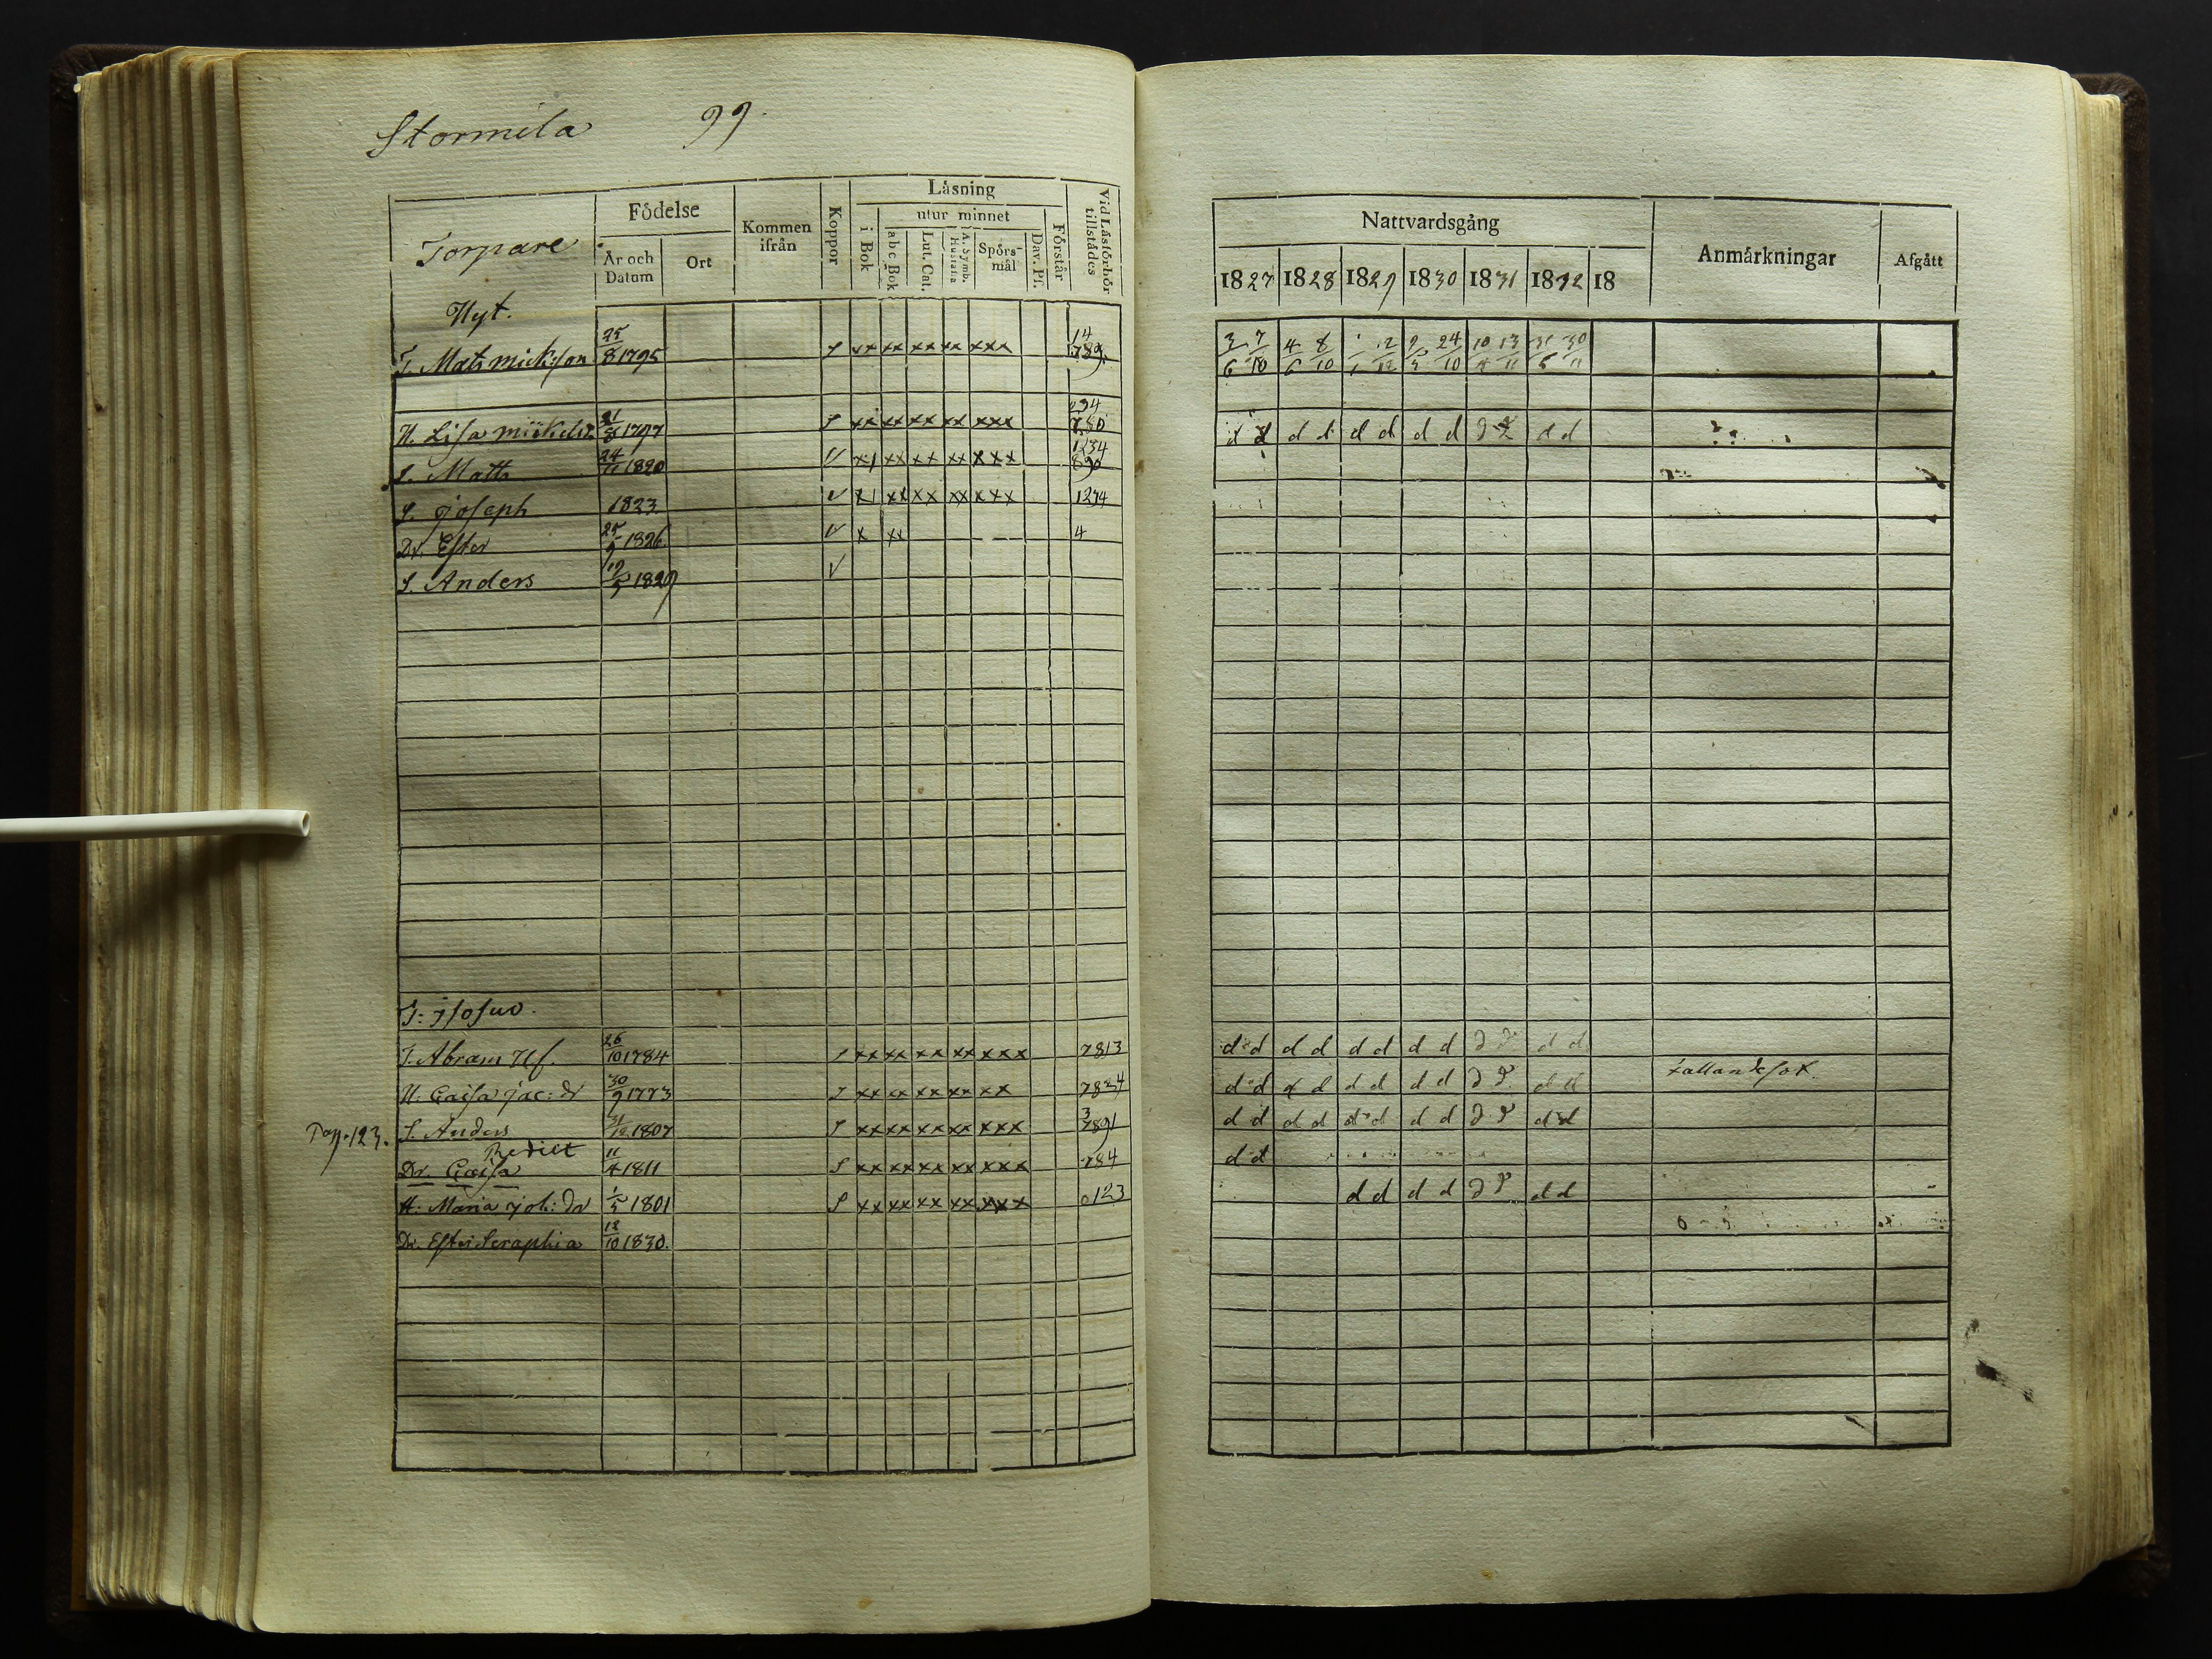 Stormila 99.
Torpare
Födelse
År och Datum
Ort
Kommen ifrån
Koppor
Läsning
i Bok
utur minnet
abc Bok
Lut. Cat.
A. Symb. Hustafla
Spörs-mål
Dav. Ps.
Förstår
Vid Läsförhör tillstädes
Nattvardsgång
1827 1828 1829 1830 1831 1832 18
Anmärkningar
Afgått
Nyt.
T. Mats Mickson 25/8 1795 S xx xx xx xx xxx 14 789. 3/6 7/10 4/6 8/10 12/12 9/5 24/10 10/4 13/11 31/6 30/11
H. Lisa Mickelsd. 21/8 1797 S xx xx xx xx xxx 234 780 d d d d d d d d d d d d
S. Matts 24/11 1820 V x1 xx xx xx xxx 1234 890
S. Joseph 1823 V x1 xx xx xx xxx 1234
Dr. Ester 25/9 1826 V x xx 4
S. Anders 19/5 1829 V
T: Isosuo.
T. Abram Uf. 26/10 1784 S xx xx xx xx xxx 7813 d d d d d d d d d d d d
H: Caisa Jac: dr 30/9 1773 S xx xx xx xx xx 7834 d d d d d d d d d d d d fallandesot.
Pag. 123. S. Anders 31/12 1807 S xx xx xx xx xxx 3 7891 d d d d d d d d d d d d
Dr. Caisa 11/4 1811 S xx xx xx xx xxx 784 d d
H: Maria Joh: dr 1/5 1801 S xx xx xx xx xxx 0123 d d d d d d d d
Dr. Ester Seraphia 18/10 1830.